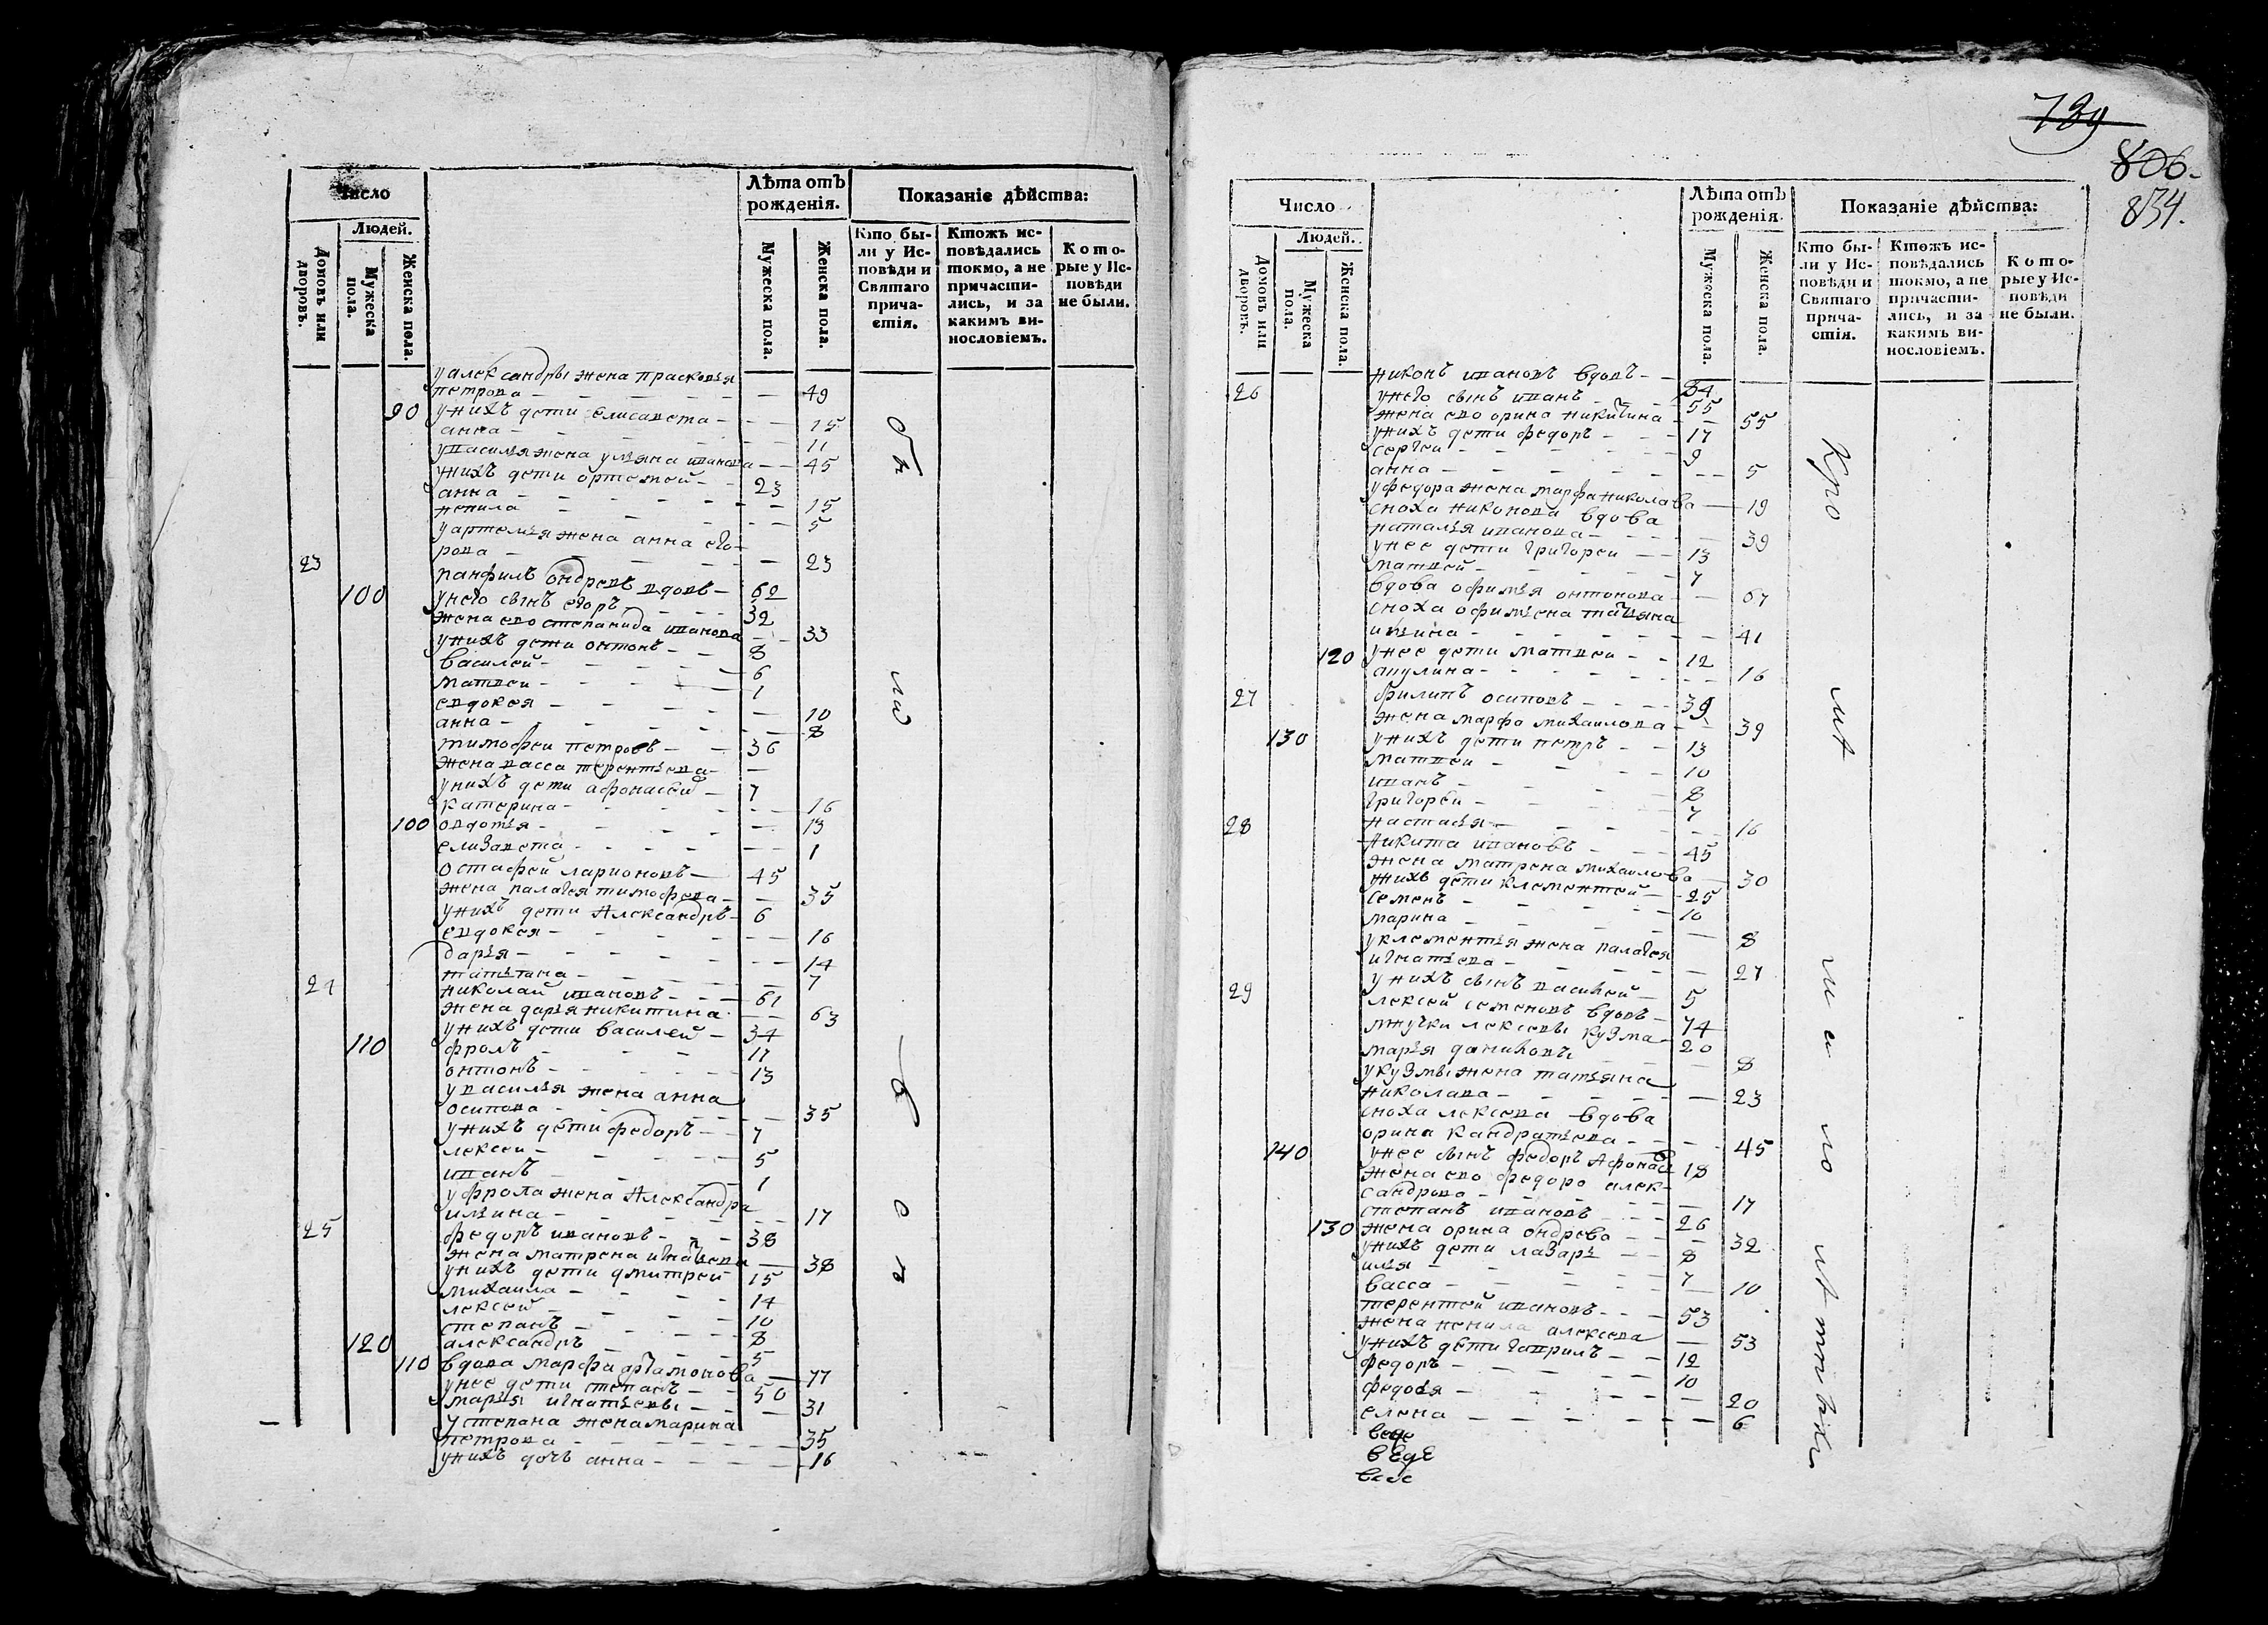 Число
Людей.
Домовъ или дворовъ.
Мужеска пола.
Женска пола.
Лѣта отъ рожденія.
Мужеска пола.
Женска пола.
Показаніе дѣйства:
Кто бы-
ли у Ис-
повѣди и
Святаго
прича-
стія.
Ктожъ ис-
повѣдались
токмо, а не
причасти-
лись, и за
какимъ ви-
нословіемъ.
Кото-
рые у Ис-
повѣди
не были.
у александры жена прасковья
петрова — 49
90 у нихъ дети елисавета — 15
анна — 11
у василья жена ульяна иванова — 45
у нихъ дети ортемей — 23
анна — 15
ненила — 5
у артемья жена анна его-
рова — 23
23 панфилъ ондревъ вдовъ — 62
100 у него сынъ егоръ 32
жена ево степанида иванова — 33
у нихъ дети онтонъ — 8
василей — 6
матвеи — 1
евдокея — 10
анна — 8
тимофеи петровъ — 36
жена васса терентьева —
у нихъ дети афонасей — 7
катерина — 16
100 овдотья — 13
елизавета — 1
остафей ларионовъ — 45
жена палагея тимофева — 35
у нихъ дети Александръ — 6
евдокея — 16
дарья — 14
татьтана — 7
24 николай ивановъ — 61
жена дарья никитина — 63
у нихъ дети василей — 34
110 фролъ — 17
онтонъ — 13
у василья жена анна
осипова — 35
у нихъ дети федоръ — 7
лексеи — 5
иванъ — 1
у фрола жена Александра
ильина — 17
25 федоръ ивановъ — 38
жена матрена игнатева — 38
у нихъ дети дмитрей 15
михаила — 14
лексей — 10
степанъ — 8
120 александръ — 5
110 вдова марфа артамонова — 77
у нее дети степанъ — 50
марья игнатьевы — 31
у степана жена марина
петрова — 35
у нихъ дочь анна — 16
739
806.
834.
Число
Людей.
Домовъ или дворовъ.
Мужеска пола.
Женска пола.
Лѣта отъ рожденія.
Мужеска пола.
Женска пола.
Показаніе дѣйства:
Кто бы-
ли у Ис-
повѣди и
Святаго
прича-
стія.
Ктожъ ис-
повѣдались
токмо, а не
причасти-
лись, и за
какимъ ви-
нословіемъ.
Кото-
рые у Ис-
повѣди
не были.
26 никонъ ивановъ вдовъ — 84
у него сынъ иванъ — 55
жена ево орина никитина — 55
у нихъ дети федоръ — 17
сергеи — 9
анна — 5
у федора жена марфа николава — 19
сноха никонова вдова
наталья иванова — 39
у нее дети григореи — 13
матвей — 7
вдова офимья онтонова — 67
сноха офимьена татьяна
ильина — 41
120 у нее дети матвеи — 12
акулина — 16
27 филипъ осиповъ — 39
жена марфа михаилова — 39
130 у нихъ дети петръ — 13
матвеи — 10
иванъ — 8
григореи — 7
настасья — 16
28 никита ивановъ — 45
жена матрена михаилова — 30
у нихъ дети клементей — 25
семенъ — 10
марина — 8
у клементья жена палагея
игнатьева — 27
у нихъ сынъ василей — 5
29 лексей семеновъ вдовъ — 74
внучки лексевы кузма — 20
марья даниловы — 8
у кузмы жена татьяна
николава — 23
сноха лексева вдова
орина кандратьева — 45
140 у нее сынъ федоръ Афонасе 18
жена ево федора алек-
сандрова — 17
степанъ ивановъ — 26
130 жена орина ондрева — 32
у нихъ дети лазарь — 8
илья — 7
васса — 10
терентей ивановъ — 53
жена ненила алексева — 53
у нихъ дети гаврилъ — 12
федоръ — 10
федосья — 20
елена — 6